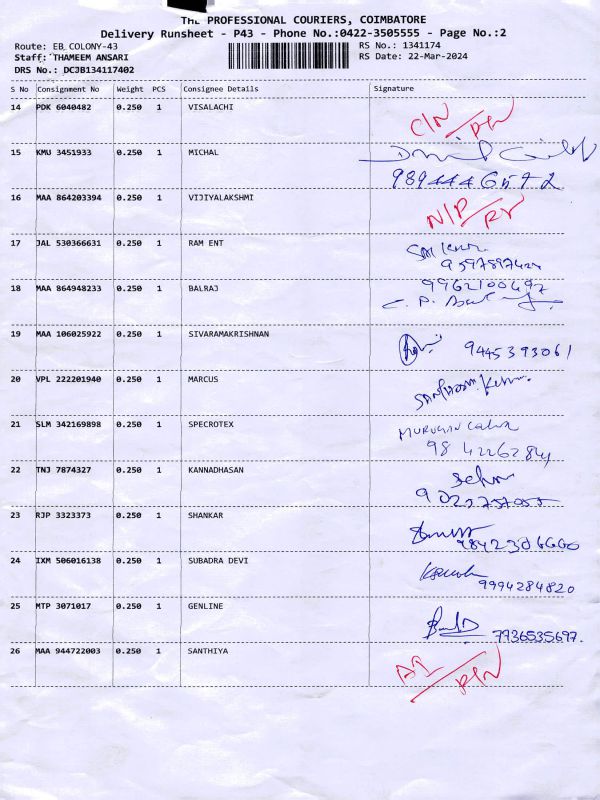 THE PROFESSIONAL COURIERS, COIMBATORE
Delivery Runsheet - P43 - Phone No.:0422-3505555 - Page No.:2
Route: EB COLONY-43 RS No.: 1341174
Staff: THAMEEM ANSARI RS Date: 22-Mar-2024
DRS No.: DCJB134117402
S No Consignment No Weight PCS Consignee Details Signature
14 PDK 6040482 0.250 1 VISALACHI
15 KMU 3451933 0.250 1 MICHAL
9894446572
16 MAA 864203394 0.250 1 VIJIYALAKSHMI
N/P
17 JAL 530366631 0.250 1 RAM ENT
18 MAA 864948233 0.250 1 BALRAJ
9962100697
19 MAA 106025922 0.250 1 SIVARAMAKRISHNAN
9445393061
20 VPL 222201940 0.250 1 MARCUS
21 SLM 342169898 0.250 1 SPECROTEX
MURUGAN
22 TNJ 7874327 0.250 1 KANNADHASAN
23 RJP 3323373 0.250 1 SHANKAR
9842306660
24 IXM 506016138 0.250 1 SUBADRA DEVI
9994284820
25 MTP 3071017 0.250 1 GENLINE
7736535697.
26 MAA 944722003 0.250 1 SANTHIYA